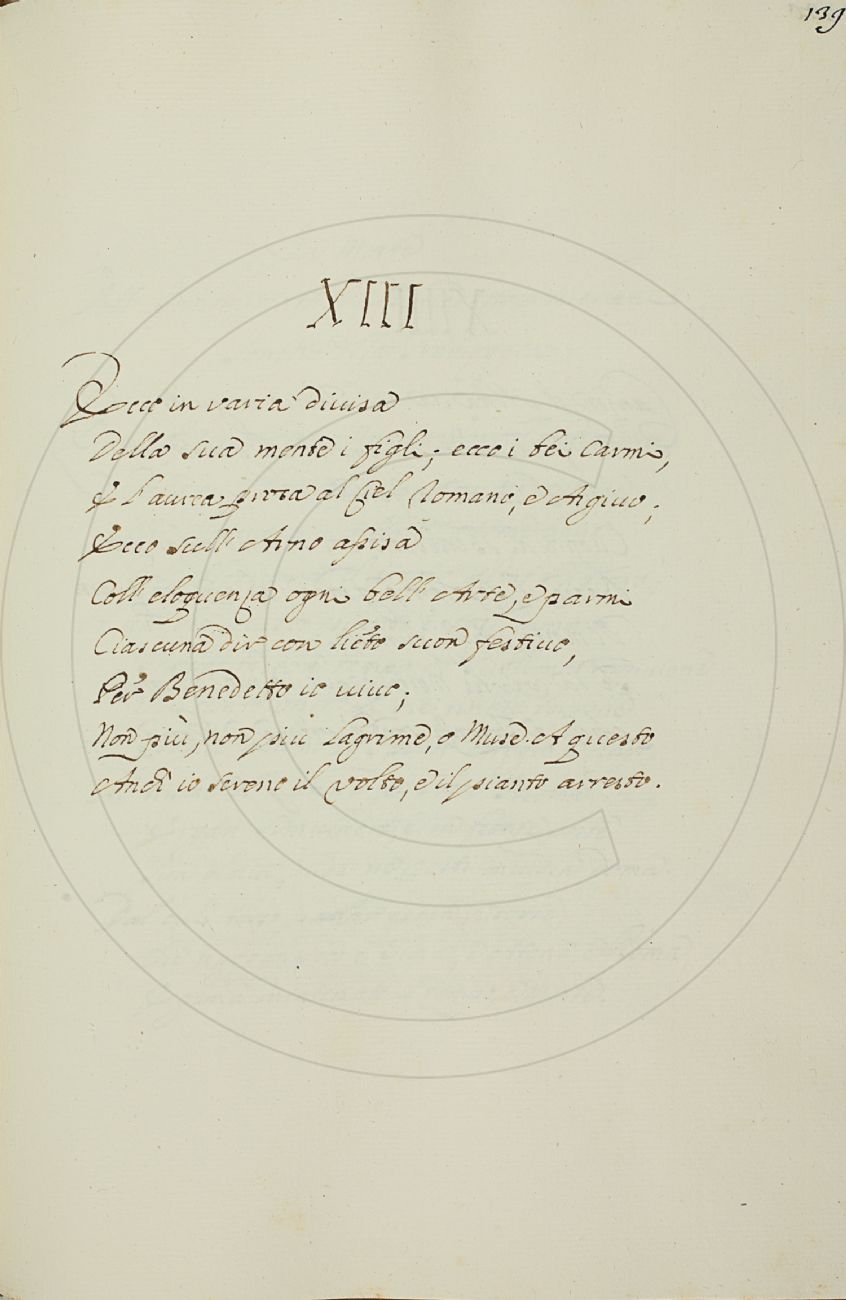 139
XIII
Ecco in varia divisa
Della sua mente i figli; ecco i bei Carmi,
E l'aurea prosa al Ciel Romano, e Argivo;
Ecco sull'Arno assisa
Coll'eloquenza ogni bell'Arte, e parmi
Ciascuna dir con lieto suon festivo,
Per Benedetto io vivo;
Non più, non più lagrime, o Muse. A questo
Anch'io sereno il volto, e il pianto arresto.